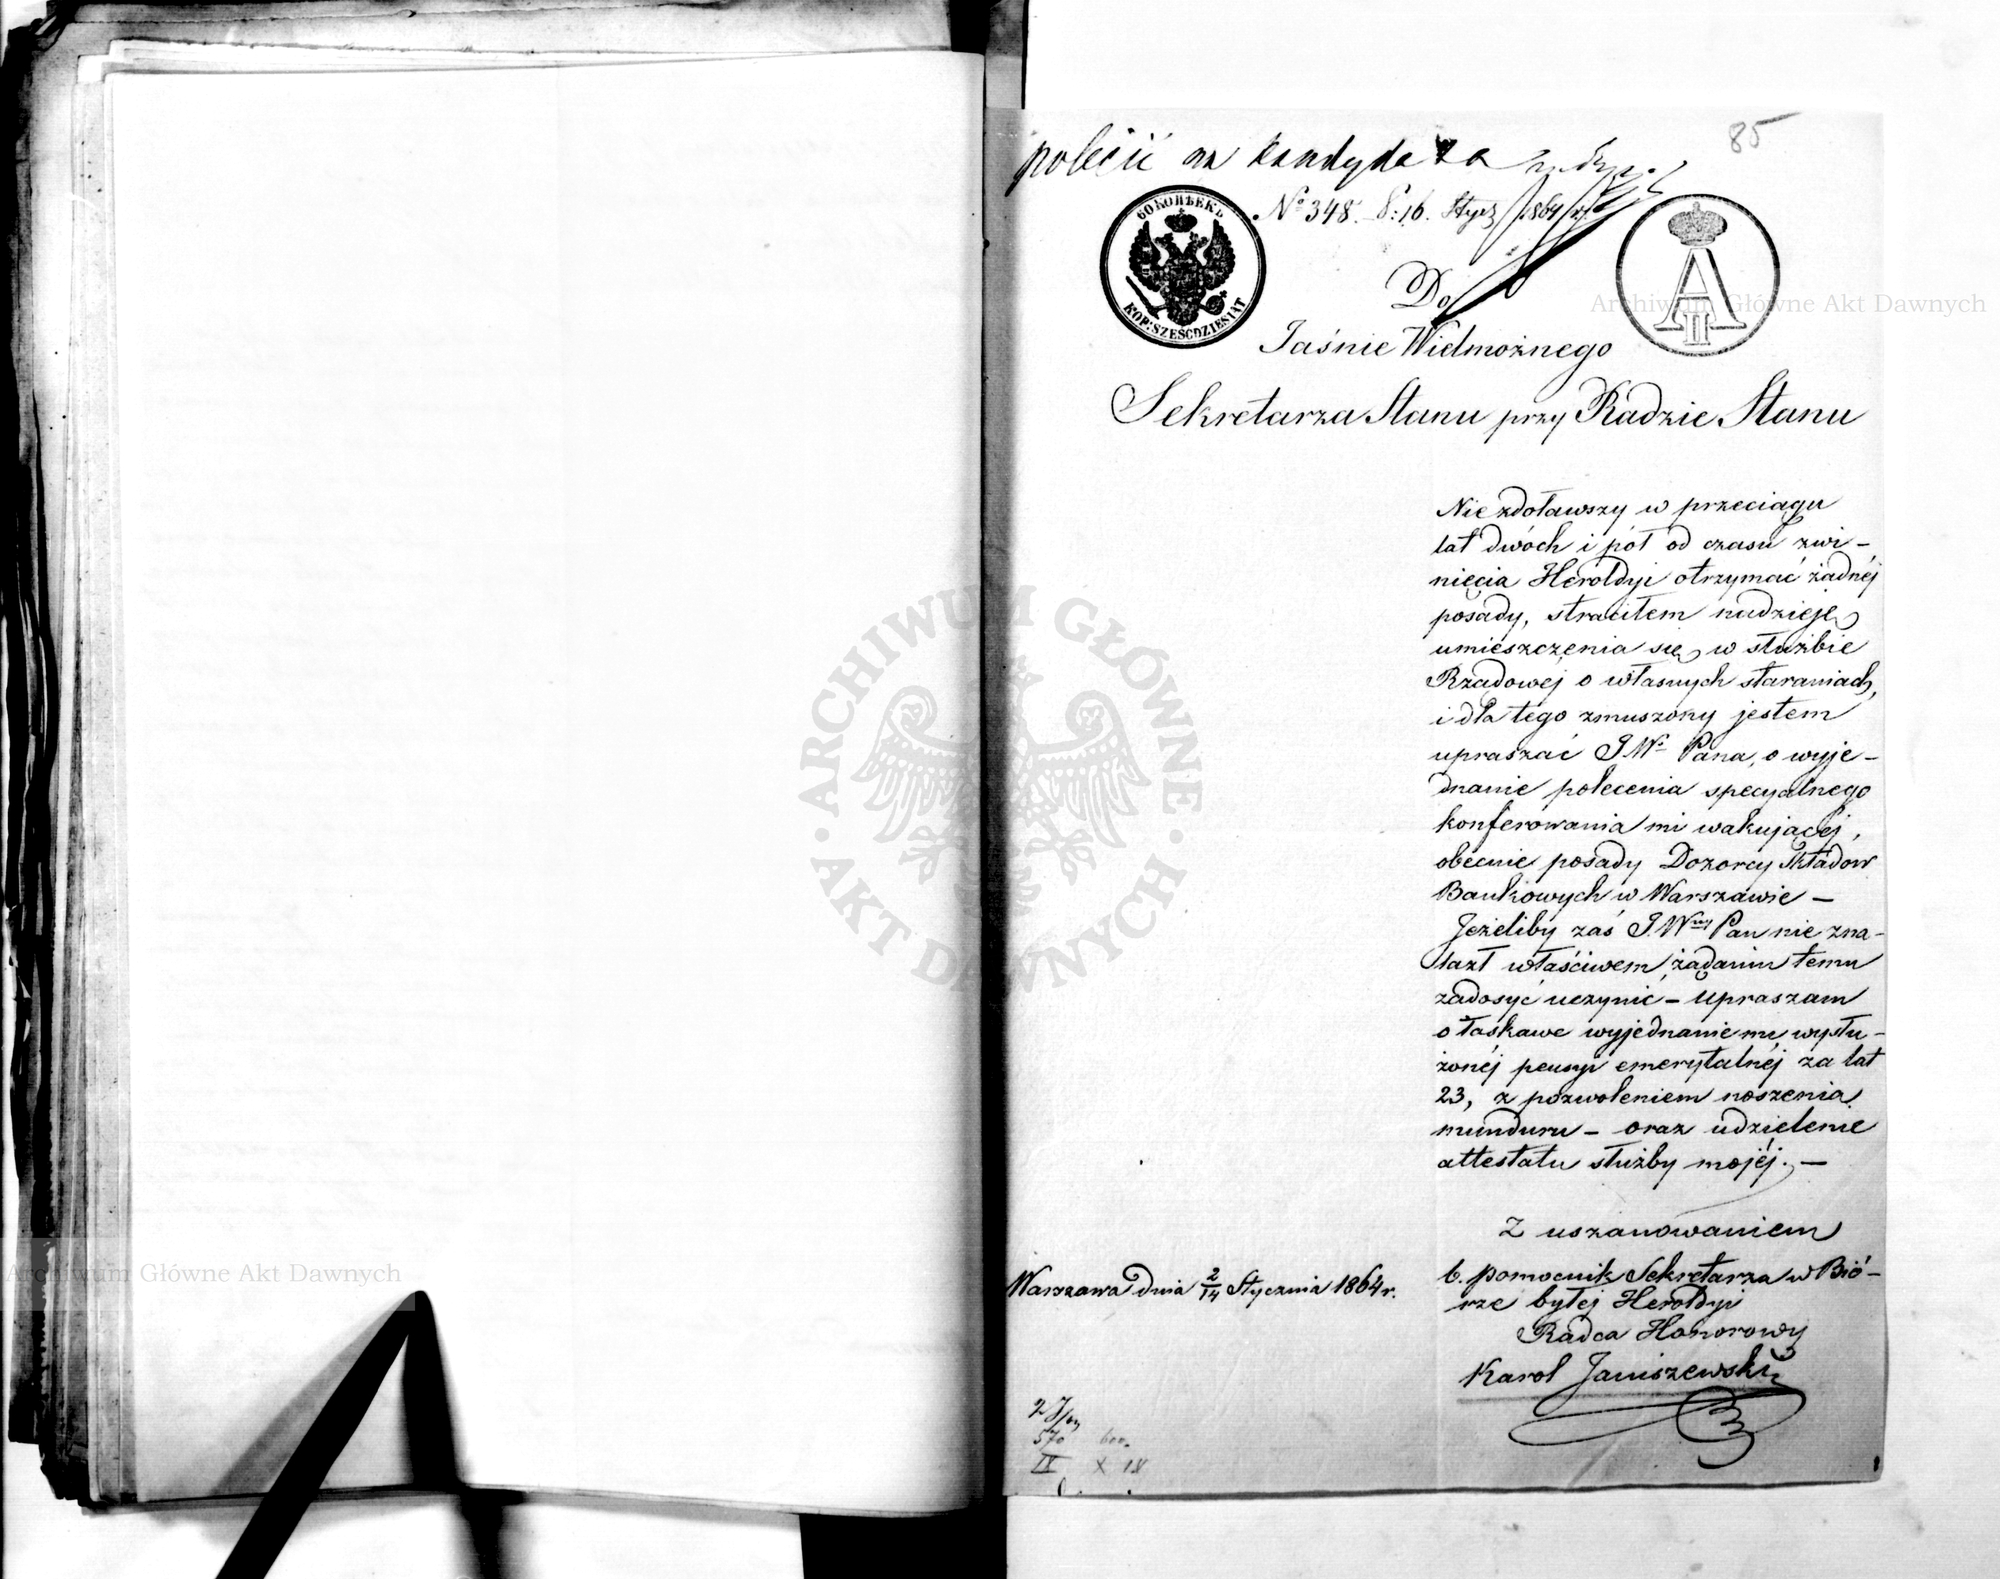 85
polecić na kandydata
№ 348. 8:16. Stycz 1864 r.
60 КОПѢЕКЪ
KOP: SZEŚĆDZIESIĄT
A II
Do
Jaśnie Wielmożnego
Sekretarza Stanu przy Radzie Stanu
Nie zdoławszy w przeciągu
lat dwóch i pół od czasu zwi-
nięcia Heroldyi otrzymać żadnéj
posady, straciłem nadzieję
umieszczenia się w służbie
Rządowej o własnych staraniach,
i dla tego zmuszony jestem
upraszać J.Wo Pana, o wyje-
dnanie polecenia specyalnego
konferowania mi wakującéj,
obecnie posady Dozorcy Składów
Bankowych w Warszawie —
Jeżeliby zaś J.Wny Pan nie zna-
lazł właściwem żądaniu temu
zadosyć uczynić — upraszam
o łaskawe wyjednanie mi wysłu-
żonéj pensyi emerytalnéj za lat
23, z pozwoleniem noszenia
munduru — oraz udzielenie
attestatu służby mojéj. —
Z uszanowaniem
b. pomocnik Sekretarza w Bió-
rze byłej Heroldyi
Radca Honorowy
Karol Janiszewski
Warszawa dnia 2/14 Stycznia 1864 r.
570 600.
IX X 18
ARCHIWUM GŁÓWNE AKT DAWNYCH
Archiwum Główne Akt Dawnych
Archiwum Główne Akt Dawnych